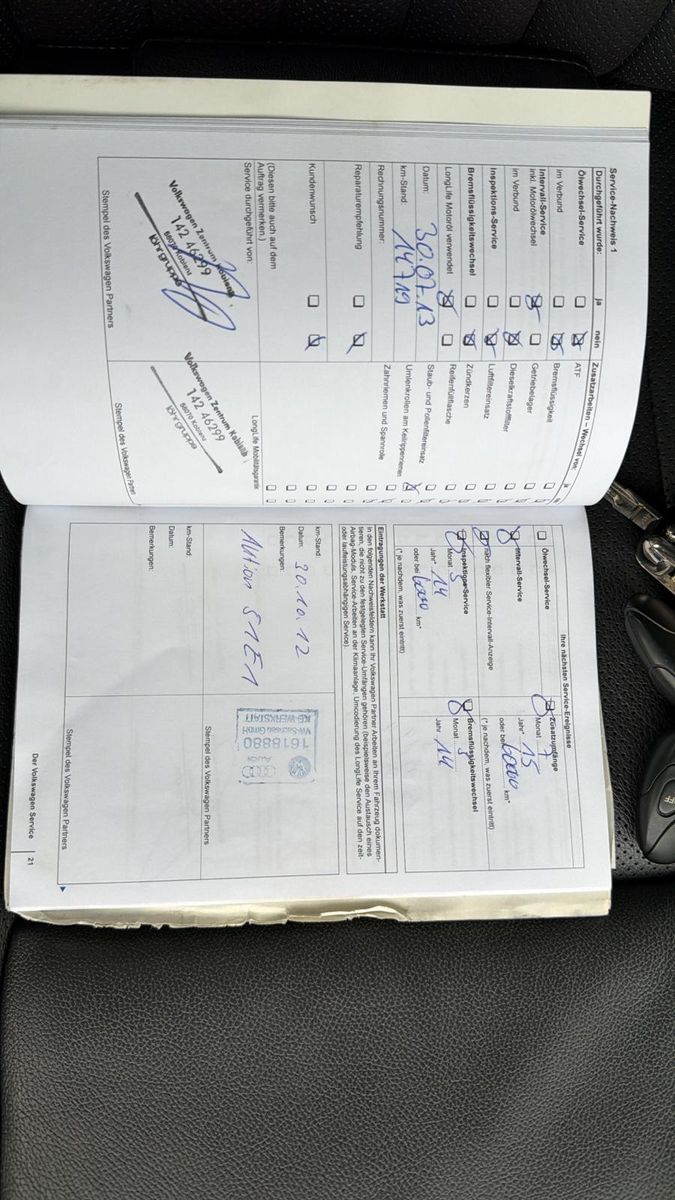 Service-Nachweis 1
Durchgeführt wurde: ja nein
Ölwechsel-Service
im Verbund
Intervall-Service
inkl. Motorölwechsel
im Verbund
Inspektions-Service
Bremsflüssigkeitswechsel
LongLife Motoröl verwendet
Datum: 30.07.13
km-Stand: 14719
Rechnungsnummer:
Reparaturempfehlung
Kundenwunsch
(Diesen bitte auch auf dem
Auftrag vermerken.)
Service durchgeführt von:
Volkswagen Zentrum Koblenz
142 46299
56070 Koblenz
löhrgruppe
Stempel des Volkswagen Partners
Zusatzarbeiten – Wechsel von: ja
ATF
Bremsflüssigkeit
Getriebelager
Dieselkraftstofffilter
Luftfiltereinsatz
Zündkerzen
Reifenfüllflasche
Staub- und Pollenfiltereinsatz
Umlenkrollen am Keilrippenriemen
Zahnriemen und Spannrolle
LongLife Mobilitätsgarantie
Volkswagen Zentrum Koblenz
142 46299
56070 Koblenz
löhrgruppe
Stempel des Volkswagen Partners
Ihre nächsten Service-Ereignisse
Ölwechsel-Service
Intervall-Service
nach flexibler Service-Intervall-Anzeige
Inspektions-Service
Monat
Jahr* 14
oder bei km*
(* je nachdem, was zuerst eintritt)
Zusatzumfänge
Monat 7
Jahr* 15
oder bei 60000 km*
(* je nachdem, was zuerst eintritt)
Bremsflüssigkeitswechsel
Monat
Jahr 14
Eintragungen der Werkstatt
In den folgenden Nachweisfeldern kann Ihr Volkswagen Partner Arbeiten an Ihrem Fahrzeug dokumen-
tieren, die nicht zu den festgelegten Service-Umfängen gehören (beispielsweise den Austausch eines
Airbag-Moduls, Service-Arbeiten an der Klimaanlage, Umcodierung des LongLife Service auf den zeit-
oder laufleistungsabhängigen Service).
km-Stand:
Datum: 30.10.12
Bemerkungen:
Aktion 51E1
1618880
Audi
KB-WERKSTATT
Stempel des Volkswagen Partners
km-Stand:
Datum:
Bemerkungen:
Stempel des Volkswagen Partners
Der Volkswagen Service 21